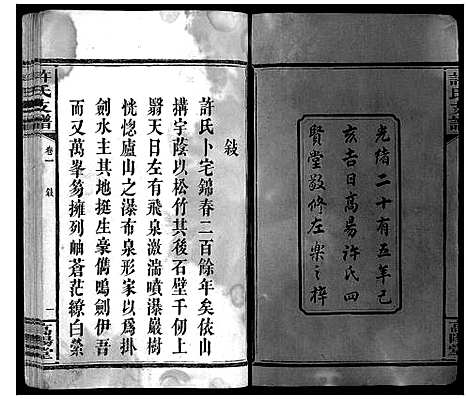 許氏支譜
光緒二十有五年己
亥吉日高昜許氏四
賢堂敬修左樂之梓
敍
許氏卜宅錦春二百餘年矣依山
搆宇蔭以松竹其後石壁千仞上
翳天日左有飛泉激湍噴瀑巖樹
恍惚廬山之瀑布泉形家以為掛
劍水主其地挺生豪儁鳴劍伊吾
而又萬峯旁擁列岫蒼茫繚白縈
許氏支譜
卷一
敍
一
高陽堂